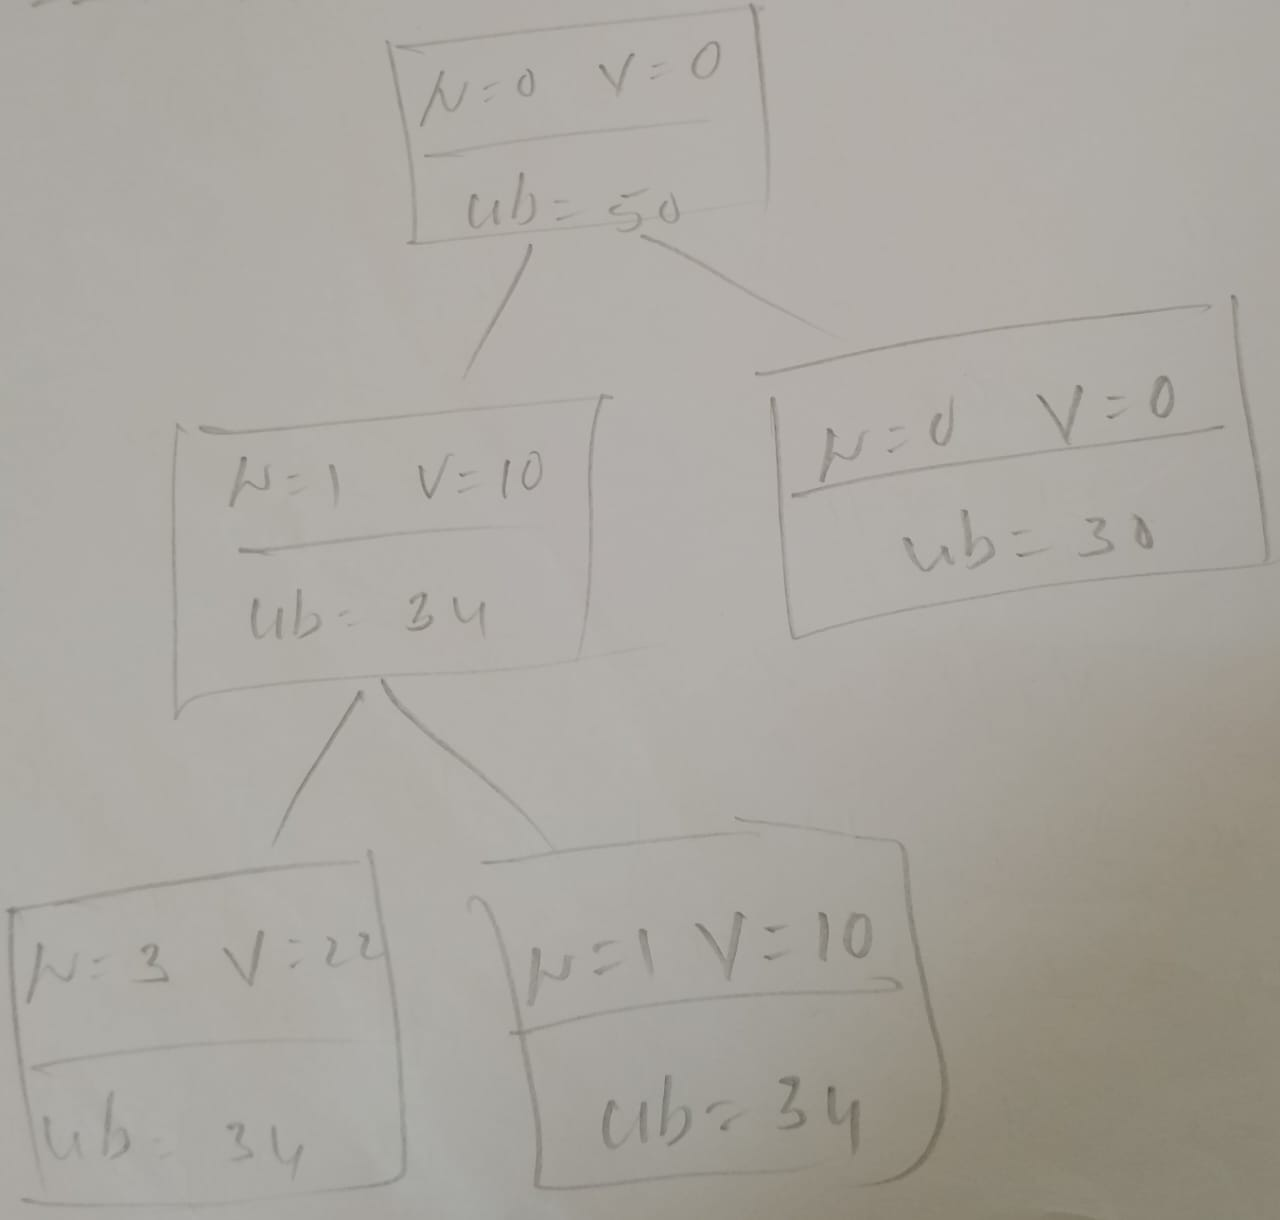 N=0 V=0
ub=50
N=1 V=10
ub=34
N=0 V=0
ub=30
N=3 V=22
ub=34
N=1 V=10
ub=34